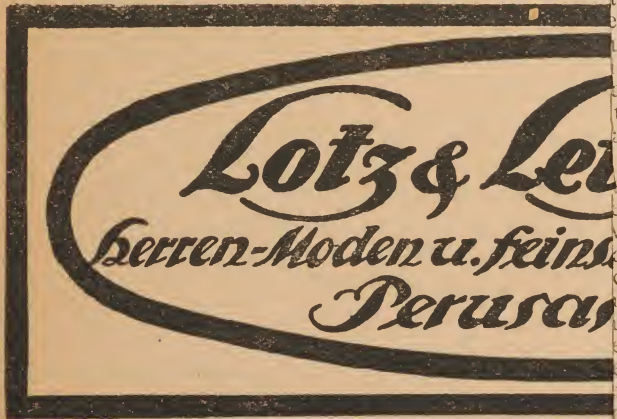 Lotz & Leu
Herren-Moden u. feins
Perusas